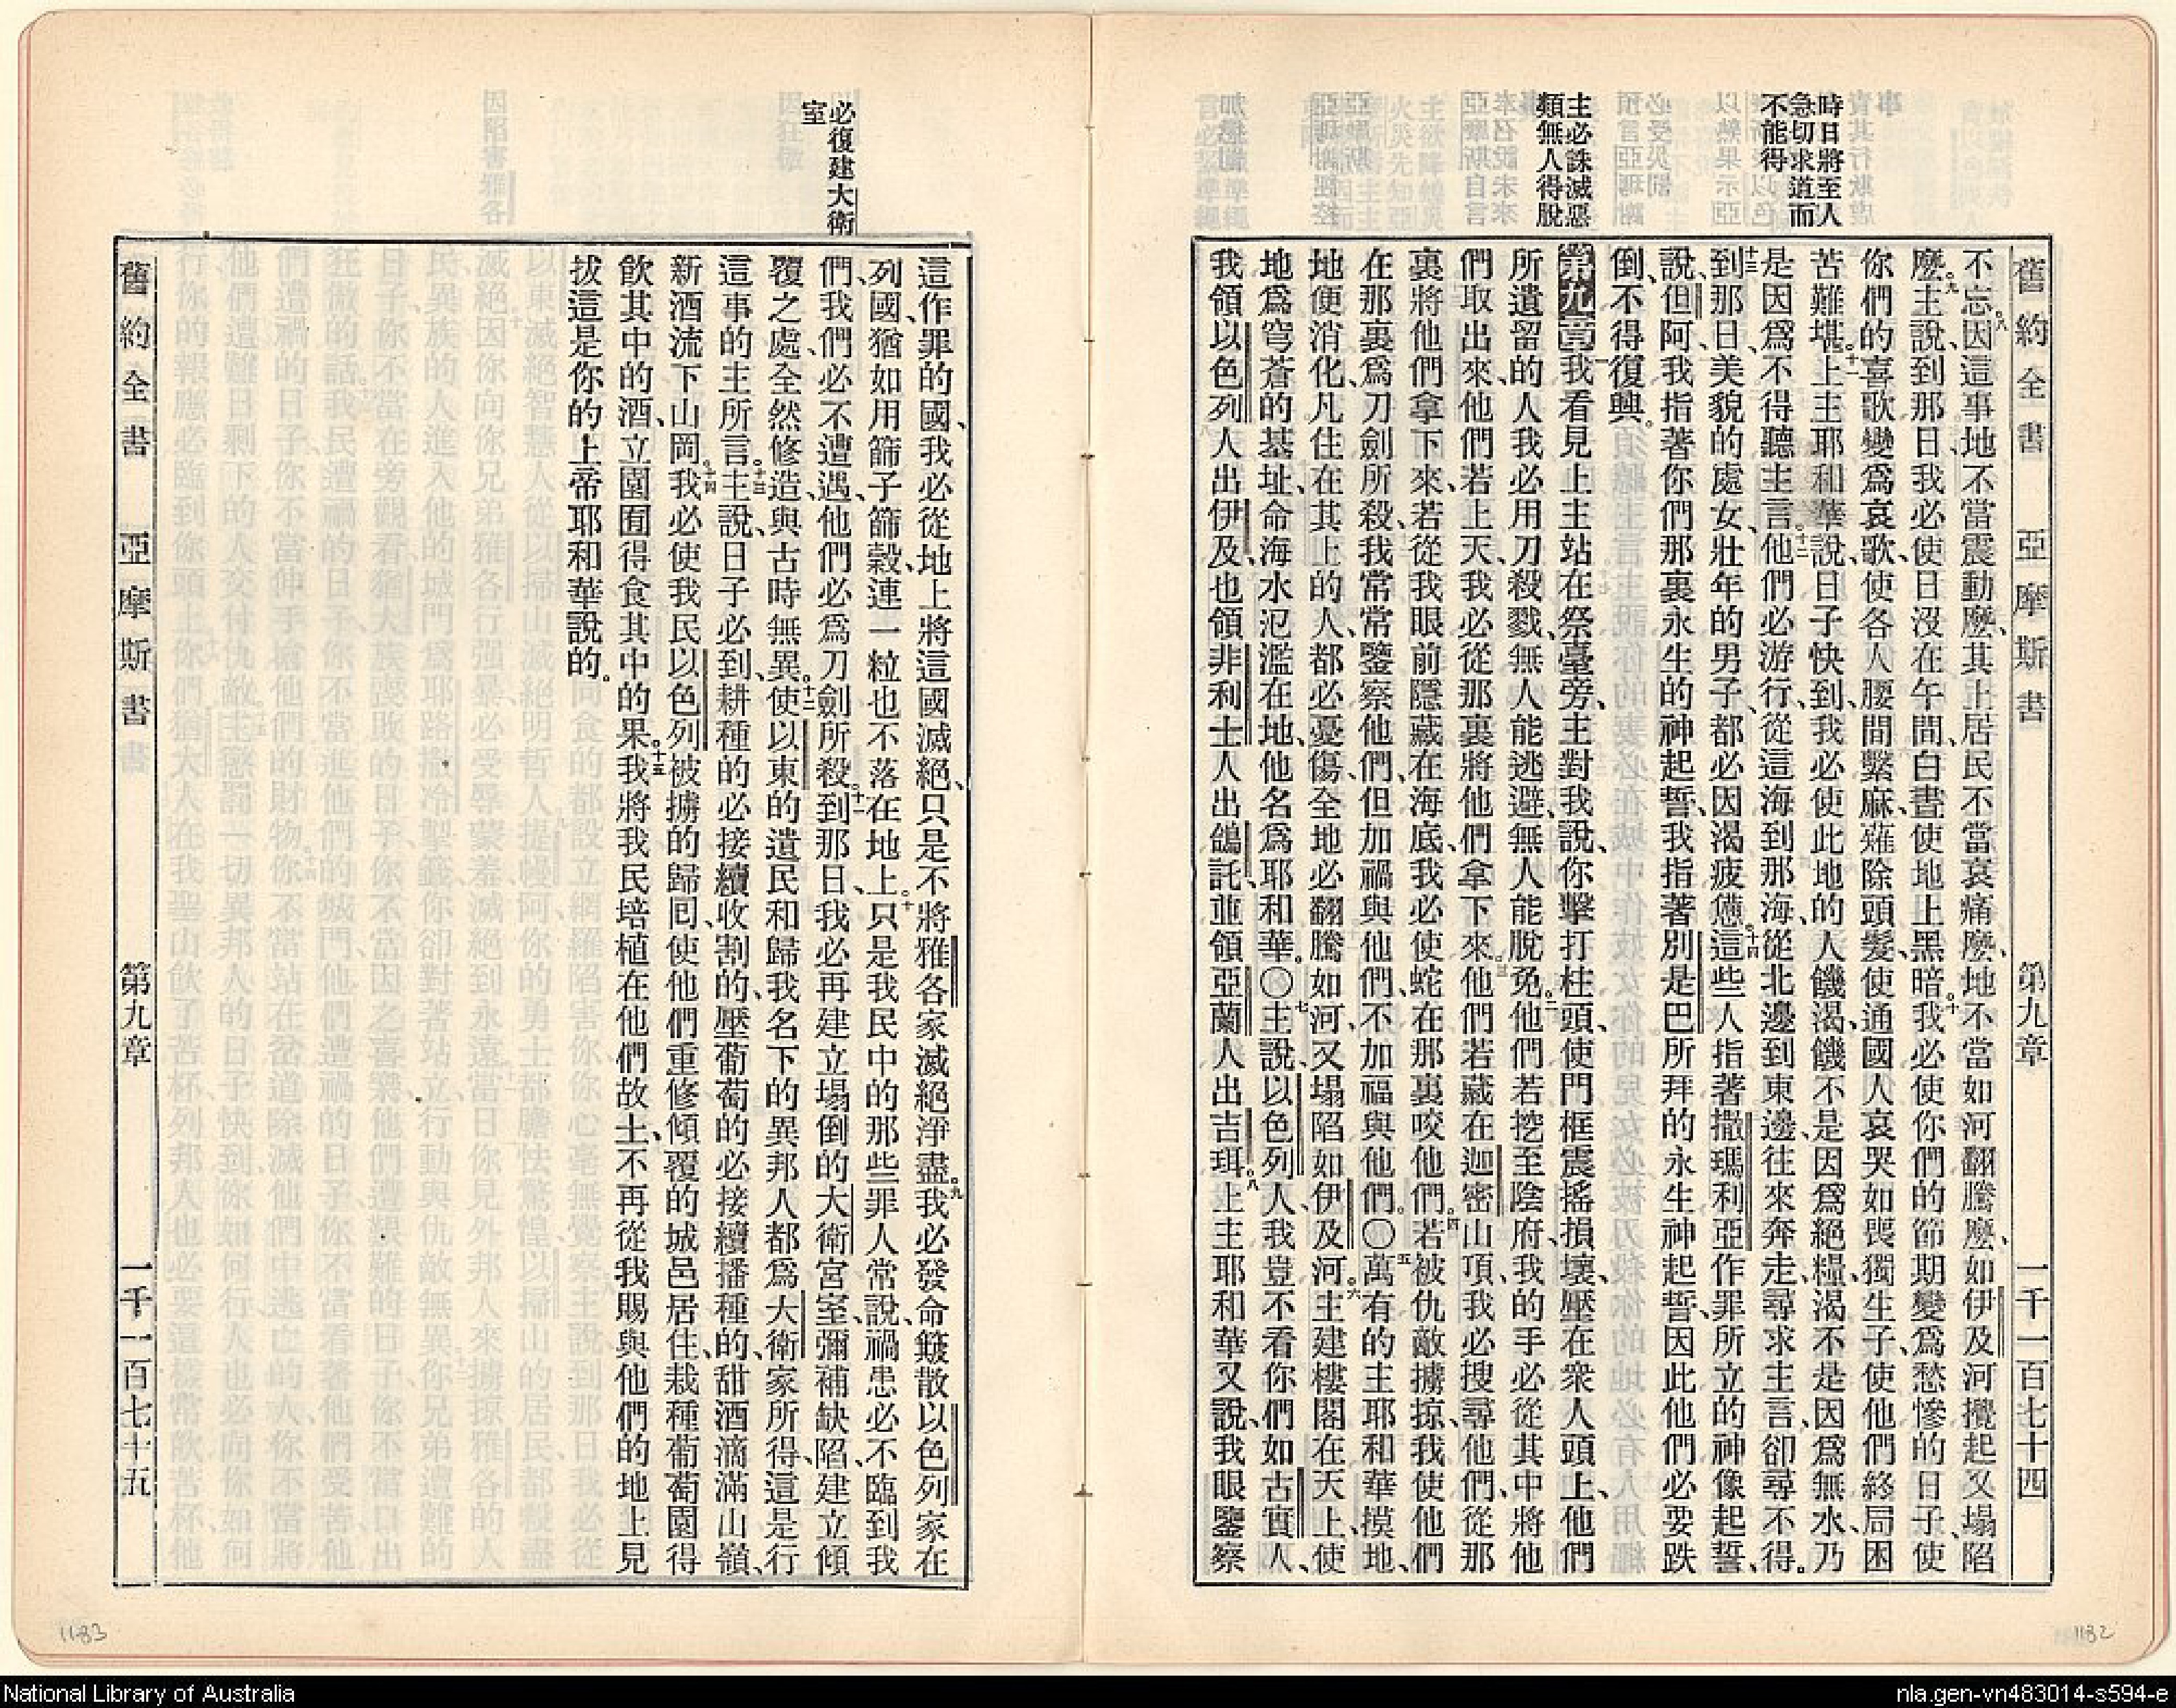 時日將至人
急切求道而
不能得
主必誅滅惡
類無人得脫
舊約全書 亞摩斯書 第九章 一千一百七十四
不忘八因這事地不當震動麼其上居民不當哀痛麼地不當如河翻騰麼如伊及河攪起又塌陷
麼九主說到那日我必使日沒在午間白晝使地上黑暗十我必使你們的節期變爲愁慘的日子使
你們的喜歌變爲哀歌使各人腰間繫麻薙除頭髮使通國人哀哭如喪獨生子使他們終局困
苦難堪十一上主耶和華說日子快到我必使此地的人饑渴饑不是因爲絕糧渴不是因爲無水乃
是因爲不得聽主言十二他們必游行從這海到那海從北邊到東邊往來奔走尋求主言卻尋不得
十三到那日美貌的處女壯年的男子都必因渴疲憊十四這些人指著撒瑪利亞作罪所立的神像起誓
說但阿我指著你們那裏永生的神起誓我指著別是巴所拜的永生神起誓因此他們必要跌
倒不得復興
第九章一我看見上主站在祭臺旁主對我說你擊打柱頭使門框震搖損壞壓在衆人頭上他們
所遺留的人我必用刀殺戮無人能逃避無人能脫免二他們若挖至陰府我的手必從其中將他
們取出來他們若上天我必從那裏將他們拿下來三他們若藏在迦密山頂我必搜尋他們從那
裏將他們拿下來若從我眼前隱藏在海底我必使蛇在那裏咬他們四若被仇敵擄掠我使他們
在那裏爲刀劍所殺我常常鑒察他們但加禍與他們不加福與他們〇五萬有的主耶和華摸地
地便消化凡住在其上的人都必憂傷全地必翻騰如河又塌陷如伊及河六主建樓閣在天上使
地爲穹蒼的基址命海水氾濫在地他名爲耶和華〇七主說以色列人我豈不看你們如古實人
我領以色列人出伊及也領非利士人出鴿託並領亞蘭人出吉珥八上主耶和華又說我眼鑒察
必復建大衛
室
這作罪的國我必從地上將這國滅絕只是不將雅各家滅絕淨盡九我必發命簸散以色列家在
列國猶如用篩子篩穀連一粒也不落在地上十只是我民中的那些罪人常說禍患必不臨到我
們我們必不遭遇他們必爲刀劍所殺十一到那日我必再建立塌倒的大衛宮室彌補缺陷建立傾
覆之處全然修造與古時無異十二使以東的遺民和歸我名下的異邦人都爲大衛家所得這是行
這事的主所言十三主說日子必到耕種的必接續收割的壓葡萄的必接續播種的甜酒滴滿山嶺
新酒流下山岡十四我必使我民以色列被擄的歸回使他們重修傾覆的城邑居住栽種葡萄園得
飲其中的酒立園囿得食其中的果十五我將我民培植在他們故土不再從我賜與他們的地上見
拔這是你的上帝耶和華說的
舊約全書 亞摩斯書 第九章 一千一百七十五
1183
1182
National Library of Australia
nla.gen-vn483014-s594-e